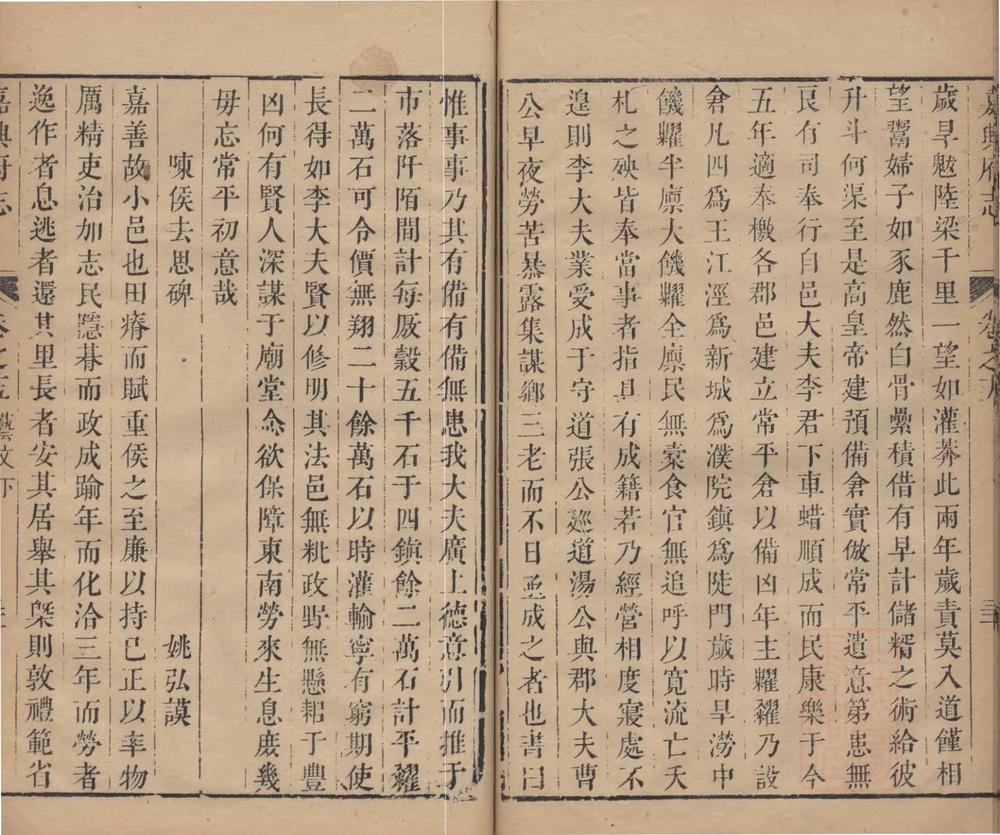 嘉興府志 卷之 三
歲旱魃陸梁千里一望如灌莽此兩年歲責莫入道僅相
望鬻婦子如豕鹿然白骨纍積借有早計儲糈之術給彼
升斗何渠至是高皇帝建預備倉實倣常平遺意第患無
良有司奉行自邑大夫李君下車蜡順成而民康樂于今
五年適奉檄各郡邑建立常平倉以備凶年主糶糴乃設
倉凡四爲王江涇爲新城爲濮院鎮爲陡門歲時旱澇中
饑糶半廩大饑糶全廩民無槖食官無追呼以寬流亡夭
札之殃皆奉當事者指具有成籍若乃經營相度寢處不
遑則李大夫業受成于守道張公廵道湯公與郡大夫曹
公早夜勞苦暴露集謀鄉三老而不日亟成之者也書曰
惟事事乃其有備有備無患我大夫廣上德意引而推于
市落阡陌間計每厫穀五千石于四鎮餘二萬石計平糴
二萬石可令價無翔二十餘萬石以時灌輸寧有窮期使
長得如李大夫賢以修明其法邑無粃政野無懸耜于豐
凶何有賢人深謀于廟堂念欲保障東南勞來生息庶幾
毋忘常平初意哉
陳侯去思碑 姚弘謨
嘉善故小邑也田瘠而賦重侯之至廉以持已正以率物
厲精吏治加志民隱朞而政成踰年而化洽三年而勞者
逸作者息逃者還其里長者安其居舉其槩則敦禮範省
嘉興府志 卷之 藝文下